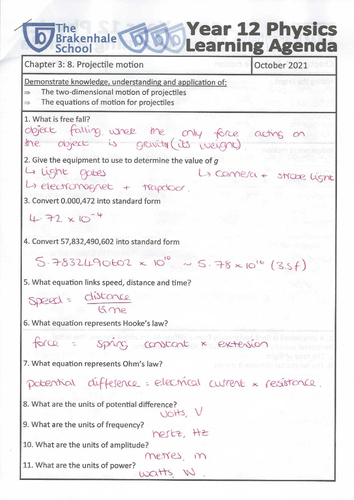 The
Brakenhale
School
Year 12 Physics
Learning Agenda
Chapter 3: 8. Projectile motion
October 2021
Demonstrate knowledge, understanding and application of:
⇒ The two-dimensional motion of projectiles
⇒ The equations of motion for projectiles
1. What is free fall?
object falling where the only force acting on
the object is gravity (its weight)
2. Give the equipment to use to determine the value of g
↳ light gates
↳ camera + strobe light
↳ electromagnet + trapdoor.
3. Convert 0.000,472 into standard form
4.72 × 10⁻⁴
4. Convert 57,832,490,602 into standard form
5.7832490602 × 10¹⁰ ~ 5.78 × 10¹⁰ (3.s.f)
5. What equation links speed, distance and time?
speed = distance
time
6. What equation represents Hooke's law?
force = spring constant × extension
7. What equation represents Ohm's law?
potential difference = electrical current × resistance.
8. What are the units of potential difference?
volts, V
9. What are the units of frequency?
hertz, Hz
10. What are the units of amplitude?
metres, m
11. What are the units of power?
watts, W